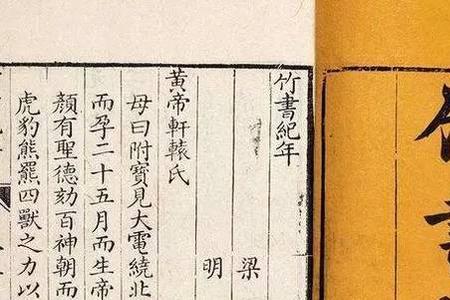 竹書紀年
梁
明
黃帝軒轅氏
母曰附寶見大電繞北
而孕二十五月而生帝
顏有聖德劾百神朝而
虎豹熊羆四獸之力以